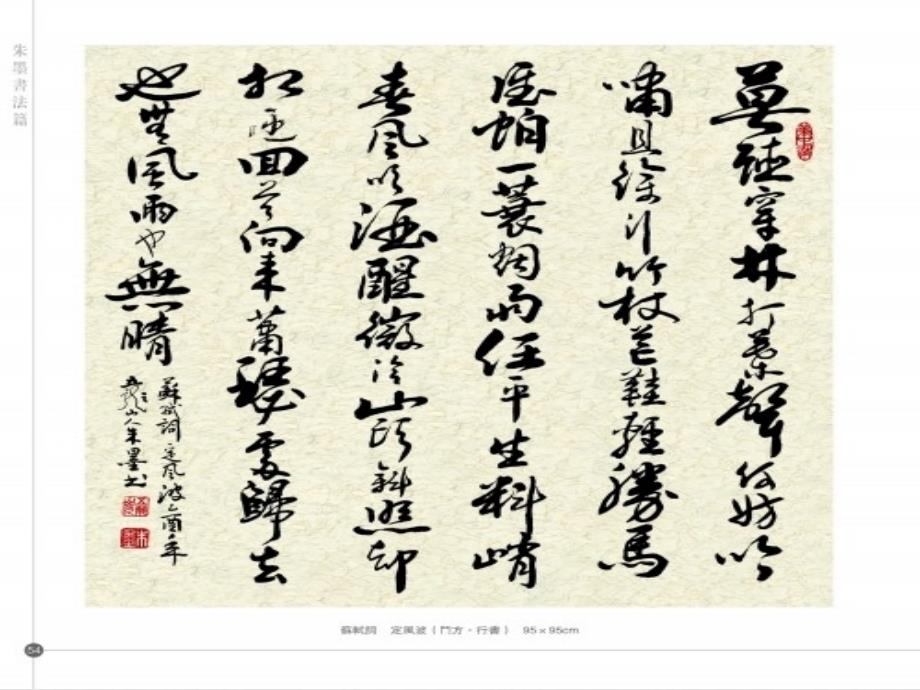 朱墨書法篇
莫聽穿林打葉聲何妨吟
嘯且徐行竹杖芒鞋輕勝馬
誰怕一蓑烟雨任平生料峭
春風吹酒醒微冷山頭斜照却
相迎回首向来蕭瑟處歸去
也無風雨也無晴
蘇軾詞定風波乙酉年
五龍山人朱墨书
蘇軾詞 定風波（鬥方・行書） 95×95cm
54